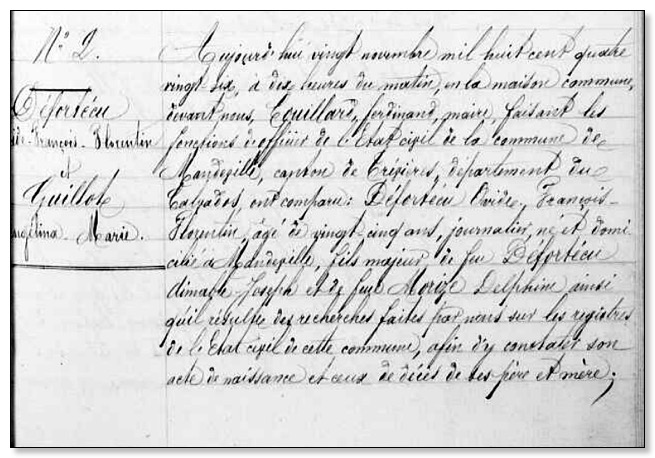 N° 2.
Défortécu
ide-François-Florentin
et
Guillot
ngélina Marie.
Aujourd'hui vingt novembre mil huit cent quatre
vingt-six, à dix heures du matin, en la maison commune,
devant nous, Equillard, ferdinand, maire, faisant les
fonctions d'officier de l'Etat civil de la commune de
Mandeville, canton de Trévières, département du
Calvados, ont comparu: Défortécu Ovide, François-
Florentin âgé de vingt-cinq ans, journalier, né et domi
cilié à Mandeville, fils majeur de feu Défortécu
Aimable-Joseph et de feue Morize Delphine ainsi
qu'il résulte des recherches faites par nous sur les registres
de l'Etat civil de cette commune, afin d'y constater son
acte de naissance et ceux de décès de ses père et mère;